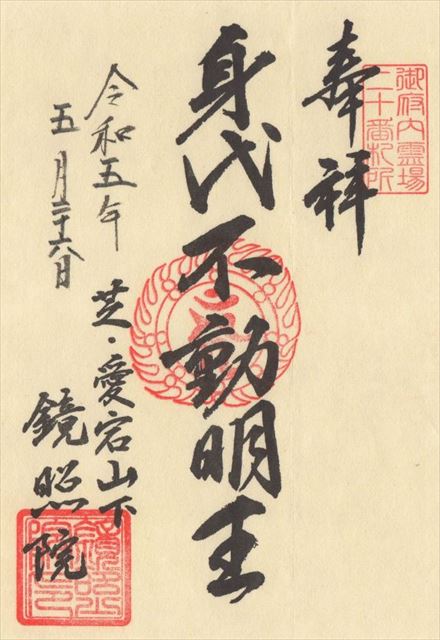 奉拝
御府内霊場
二十番札所
身代不動明王
芝・愛宕山下
鏡照院
令和五年
五月二十六日